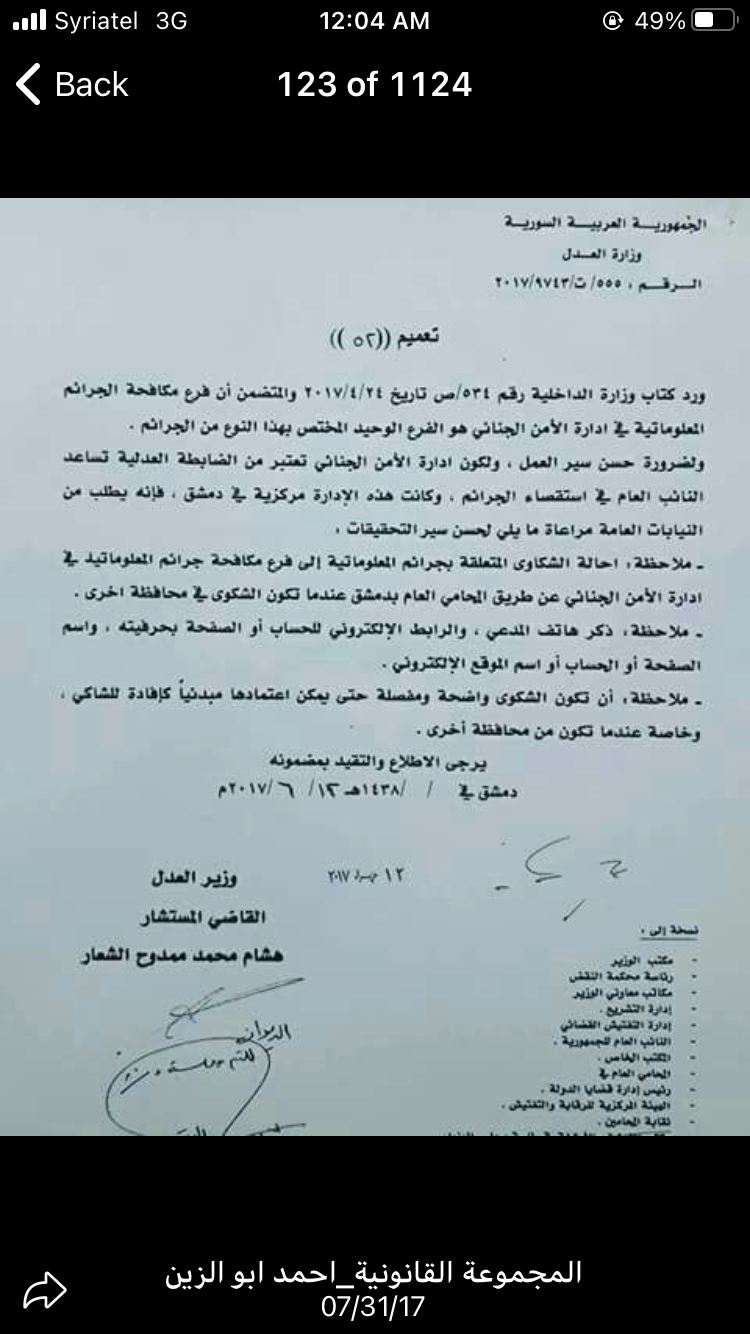 Syriatel 3G 12:04 AM 49%
Back 123 of 1124
الجمهورية العربية السورية
وزارة العدل
الرقم : ٥٥٥/ت/٢٠١٧/٩٧٤٣
تعميم ((٥٢))
ورد كتاب وزارة الداخلية رقم ٥٣٤/ص تاريخ ٢٠١٧/٤/٢٤ والمتضمن أن فرع مكافحة الجرائم
المعلوماتية في ادارة الأمن الجنائي هو الفرع الوحيد المختص بهذا النوع من الجرائم .
ولضرورة حسن سير العمل ، ولكون ادارة الأمن الجنائي تعتبر من الضابطة العدلية تساعد
النائب العام في استقصاء الجرائم ، وكانت هذه الإدارة مركزية في دمشق ، فإنه يطلب من
النيابات العامة مراعاة ما يلي لحسن سير التحقيقات :
ـ ملاحظة: احالة الشكاوى المتعلقة بجرائم المعلوماتية إلى فرع مكافحة جرائم المعلوماتية في
ادارة الأمن الجنائي عن طريق المحامي العام بدمشق عندما تكون الشكوى في محافظة اخرى .
ـ ملاحظة: ذكر هاتف المدعي ، والرابط الإلكتروني للحساب أو الصفحة بحرفيته ، واسم
الصفحة أو الحساب أو اسم الموقع الإلكتروني .
ـ ملاحظة: أن تكون الشكوى واضحة ومفصلة حتى يمكن اعتمادها مبدئياً كإفادة للشاكي ،
وخاصة عندما تكون من محافظة أخرى .
يرجى الاطلاع والتقيد بمضمونه
دمشق في / /١٤٣٨هـ ١٢/ ٦ /٢٠١٧م
١٢ حزيران ٢٠١٧
وزير العدل
القاضي المستشار
هشام محمد ممدوح الشعار
الديوان
نسخة إلى :
- مكتب الوزير
- رئاسة محكمة النقض
- مكاتب معاوني الوزير
- إدارة التشريع .
- إدارة التفتيش القضائي
- النائب العام للجمهورية .
- المكتب الخاص .
- المحامي العام في
- رئيس إدارة قضايا الدولة .
- الهيئة المركزية للرقابة والتفتيش .
- نقابة المحامين .
المجموعة القانونية_احمد ابو الزين
07/31/17